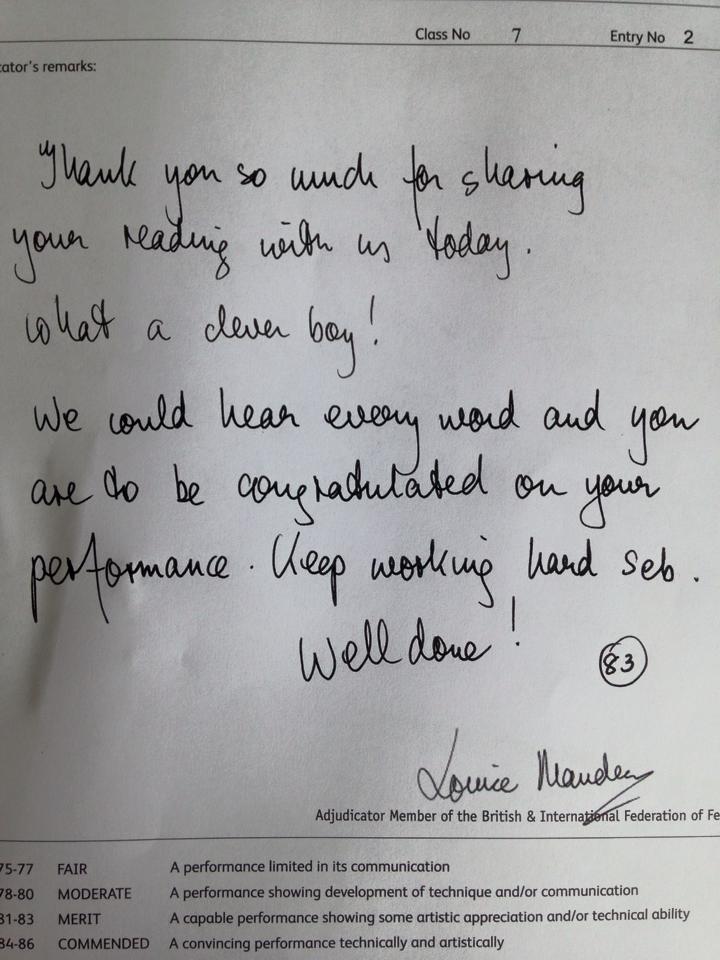 Class No 7 Entry No 2
cator's remarks:
Thank you so much for sharing
your reading with us today.
What a clever boy!
We could hear every word and you
are to be congratulated on your
performance. Keep working hard Seb.
Well done!
83
Louise
Adjudicator Member of the British & International Federation of Fe
75-77 FAIR A performance limited in its communication
78-80 MODERATE A performance showing development of technique and/or communication
81-83 MERIT A capable performance showing some artistic appreciation and/or technical ability
84-86 COMMENDED A convincing performance technically and artistically